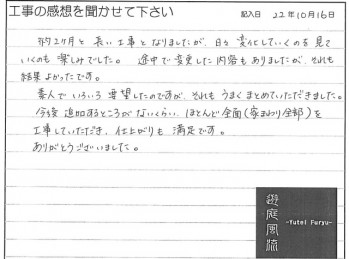 工事の感想を聞かせて下さい
記入日 22年10月16日
約2ヶ月と長い工事となりましたが、日々変化していくのを見て
いくのも楽しみでした。途中で変更した内容もありましたが、それも
結果よかったです。
素人でいろいろ要望したのですが、それもうまくまとめていただきました。
今後追加するところがないくらい、ほとんど全面(家まわり全部)を
工事していただき、仕上がりも満足です。
ありがとうございました。
遊庭風流
-Yutei Furyu-